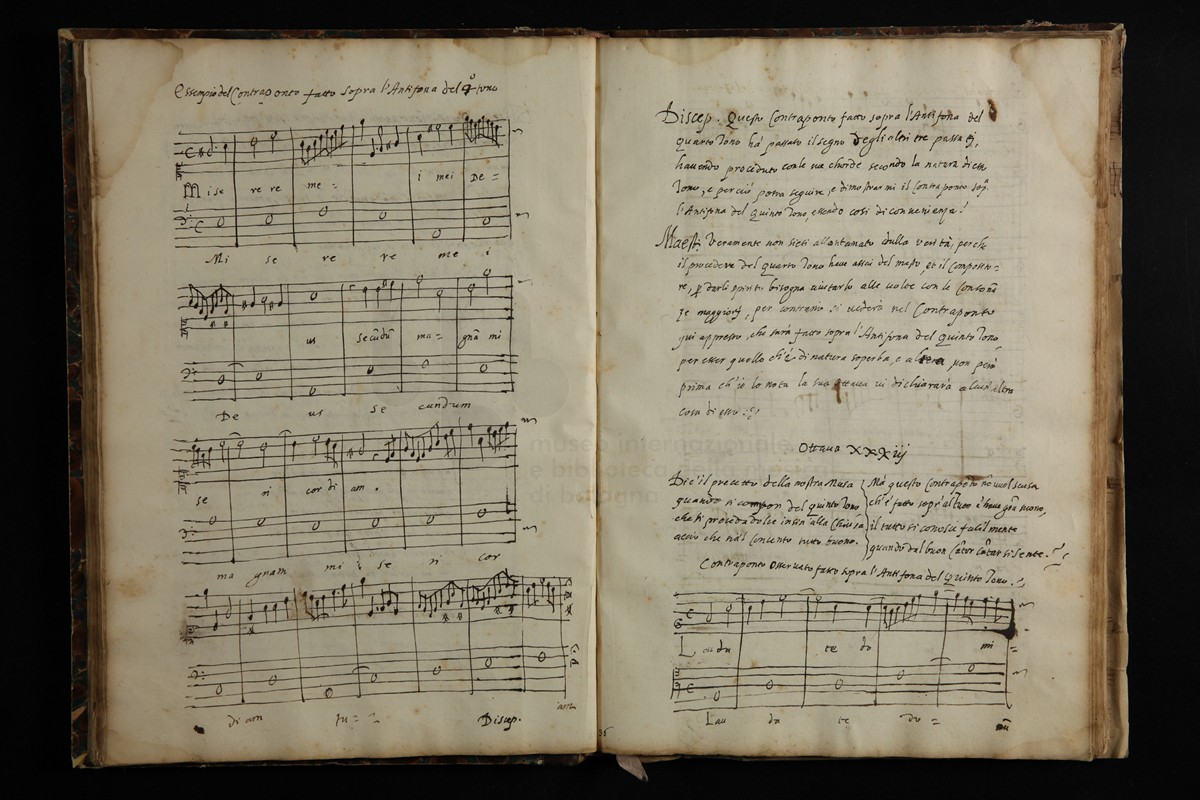 Essempio del Contraponto fatto sopra l'Antifona del 4º tuno
Mise re re me = i mei De =
Mi se re re me i
us secūdū ma = gnā mi
De us se cundum
se ri cordi am.
ma gnam mi se ri cor
di am tu = =
Discep.
Discep. Questo Contraponto fatto sopra l'Antifona del
quarto Tono ha passato il segno degli altri tre passati,
hauendo proceduto con le sue chorde secondo la natura di esso
Tono, e perciò potra seguire, e dimostrarmi il Contraponto sop.ª
l'Antifona del quinto Tono, essendo così di conuenienza.
Maest. Veramente non sieti allontanato dalla verità, perche
il procedere del quarto Tono haue assai del mesto, et il Composito=
re, p darli spirito bisogna aiutarlo alle volte con le Consonā
ze maggiori, per contrario si uederà nel Contraponto
qui appresso, che sarà fatto sopra l'Antifona del quinto Tono
per esser quello ch'è di natura soperba, e altera non però
prima ch'io lo nota la sua ottaua ui dichiararà alcun'altra
cosa di esso
museo internazionale
e biblioteca della musica
bologna
Ottaua XXXiij
Dic'il precetto della nostra Musa
quando si compon del quinto Tono
che si proceda dolce insin alla Chiusa
acciò che nasc'il concento tutto buono.
Ma questo Contraponto nō uuol scusa
ch'è fatto sopr'
il tutto si conosce facilmente
quando dal buon Cātor Cātar si sente.
Contraponto osseruato fatto sopra l'Antifona del quinto Tono.
Lauda te do mi =
Lau da te do =
36